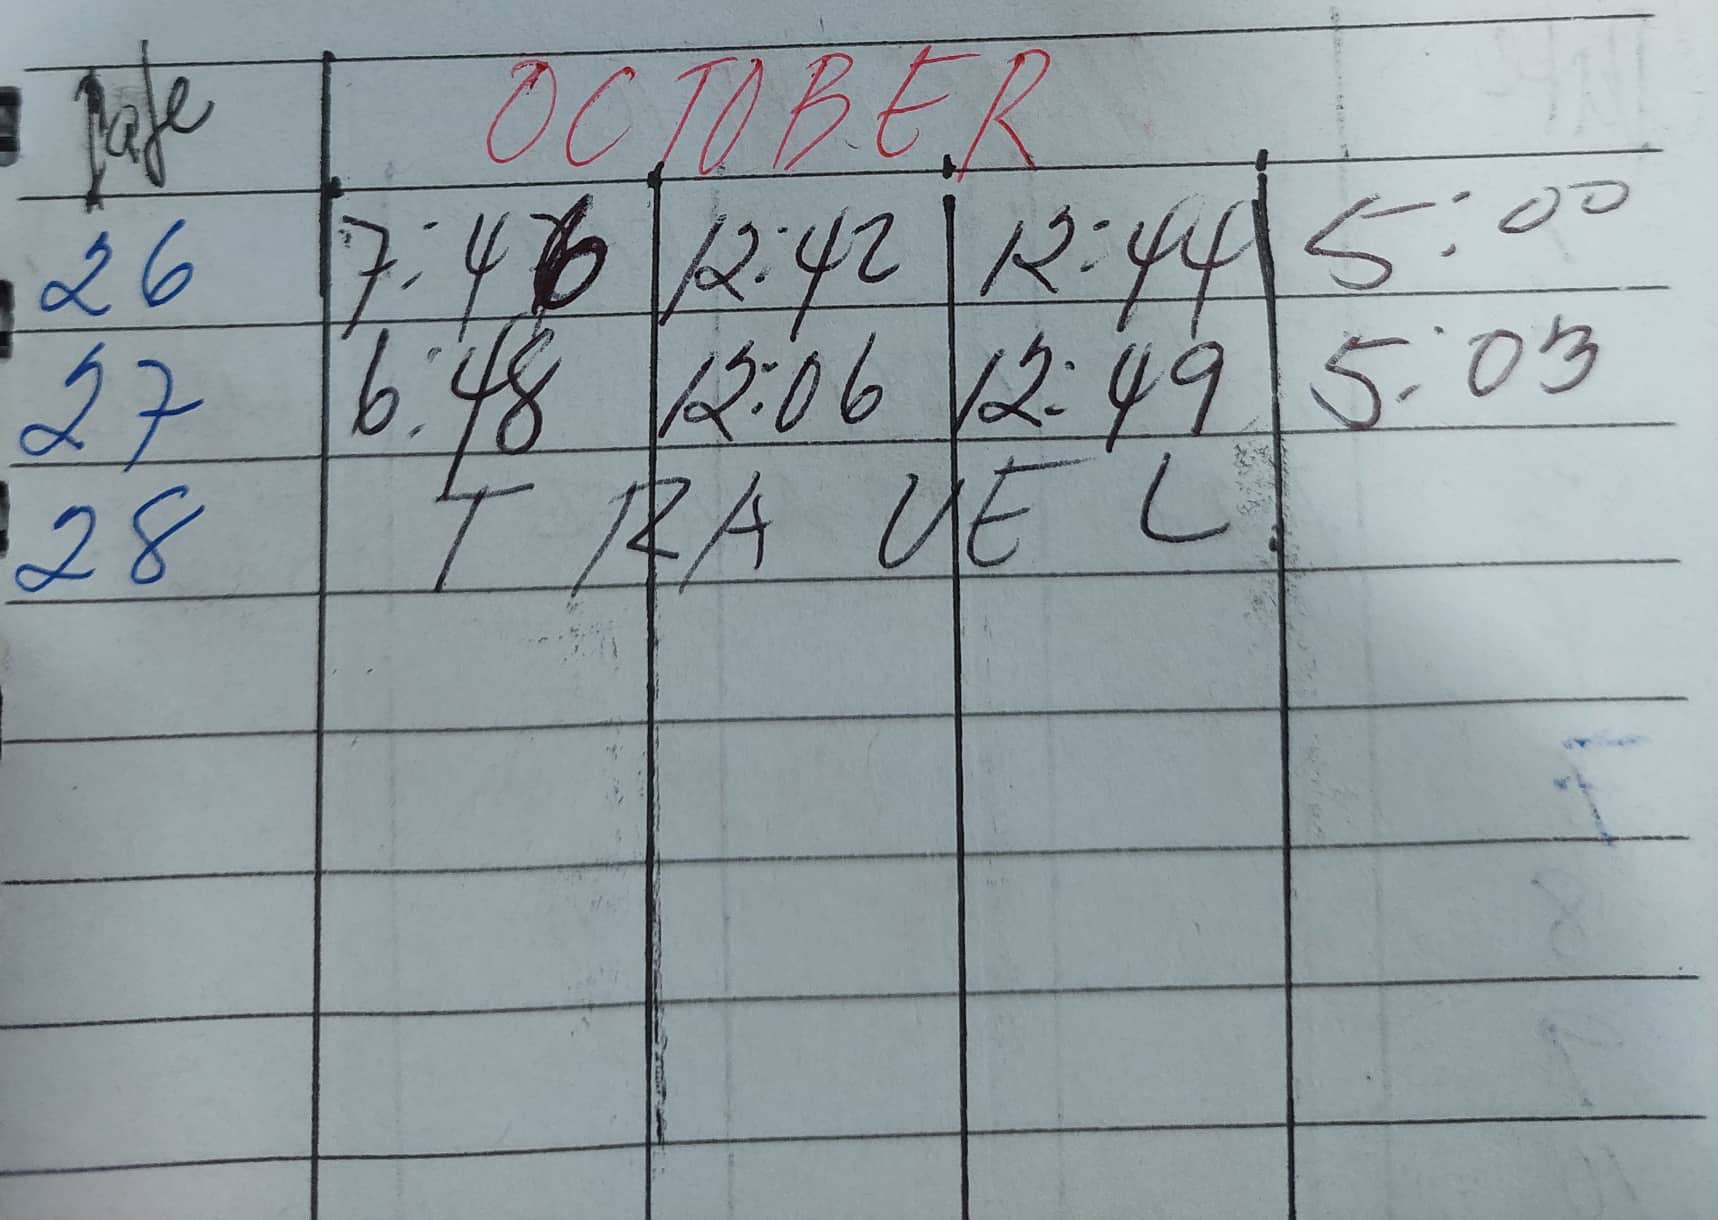 Date OCTOBER
26 7:46 12:42 12:44 5:00
27 6:48 12:06 12:49 5:03
28 TRAVEL